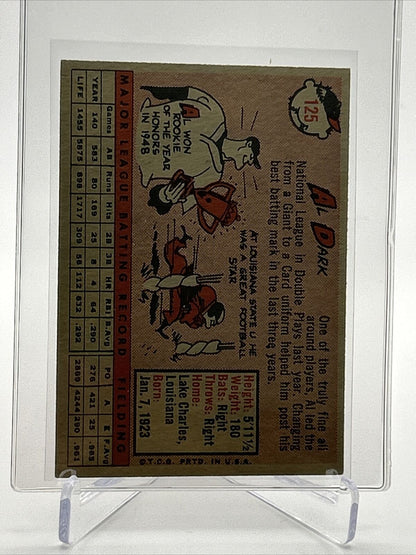 125
AL DARK
One of the truly fine all
around players, Al led the
National League in Double Plays last year. Changing
from a Giant to a Card uniform helped him post his
best batting mark in the last three years.
AL WON
ROOKIE
OF THE YEAR
HONORS
IN 1948
AT LOUISIANA STATE U HE
WAS A GREAT FOOTBALL
STAR
Height: 5'11½
Weight: 180
Bats: Right
Throws: Right
Home:
Lake Charles,
Louisiana
Born:
Jan 7, 1923
©T.C.G. PRTD. IN U.S.A.
MAJOR LEAGUE BATTING RECORD FIELDING
Games AB Runs Hits 2B 3B HR RBI B.Avg PO A E F.Avg
YEAR 140 583 80 169 25 8 4 64 .290 276 421 25 .965
LIFE 1455 5875 898 1717 309 56 112 632 .292 2869 4244 290 .961